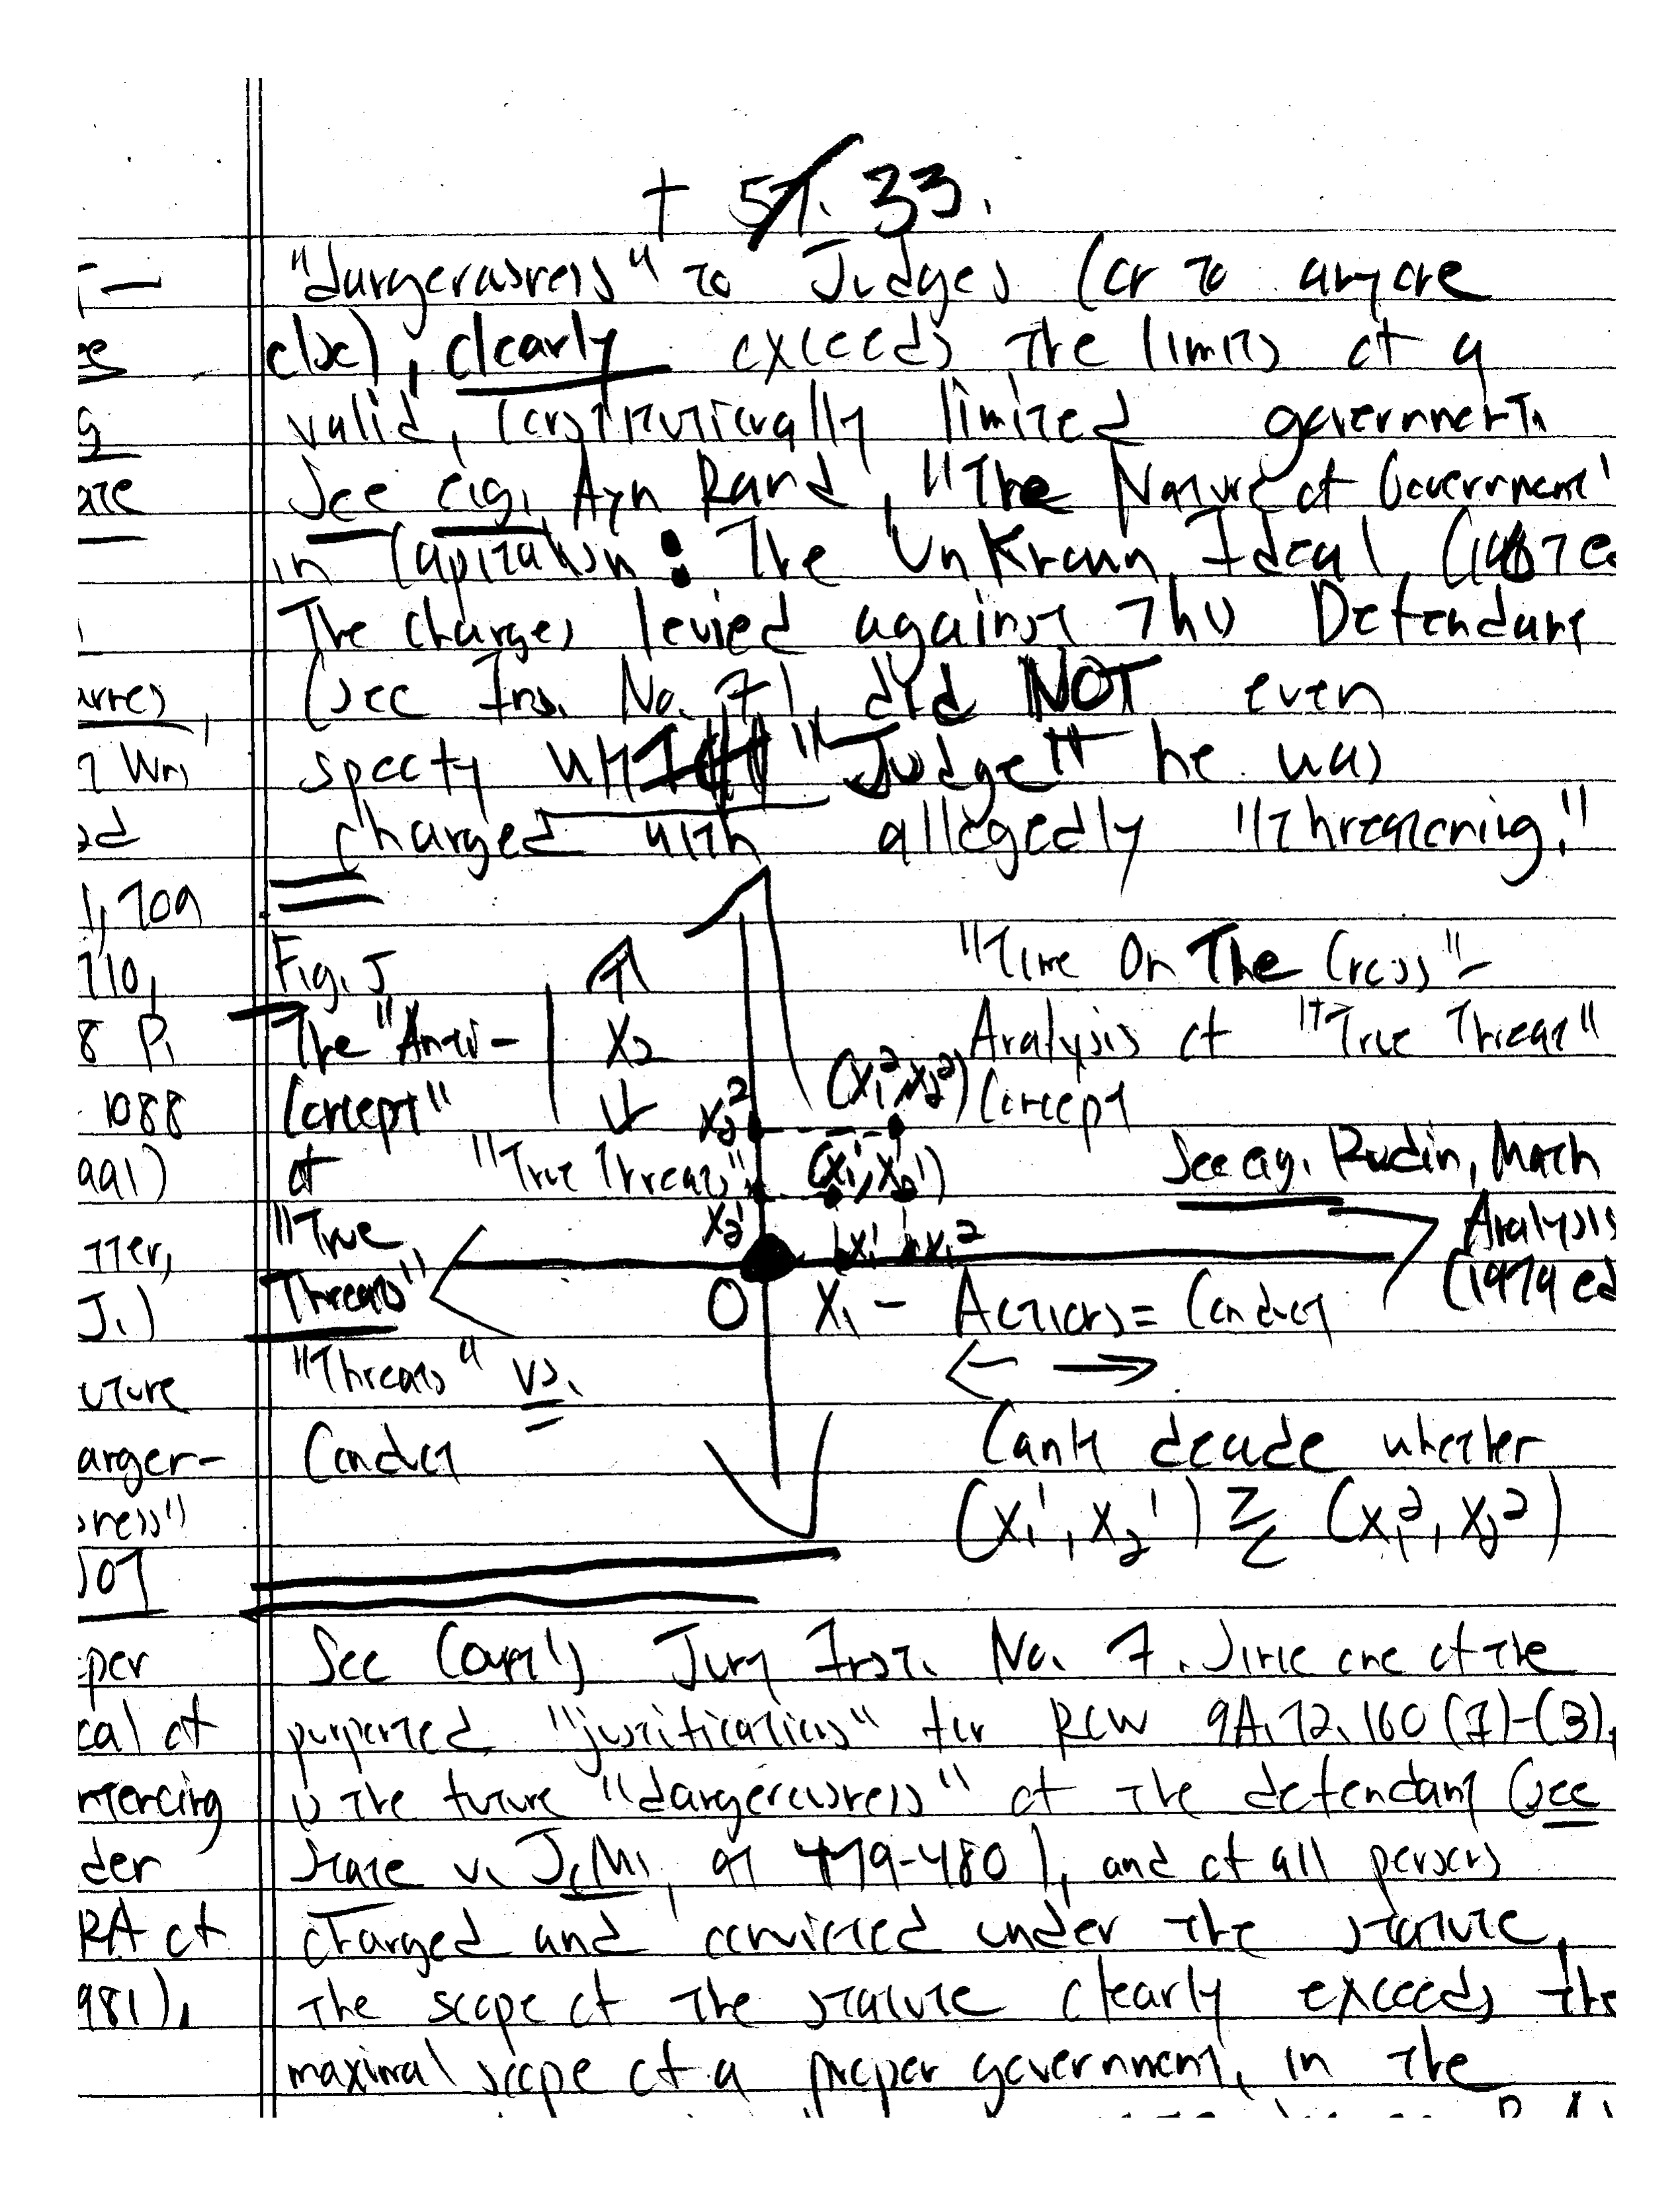 † 57. 33.
"dangerousness" to Judges (or to anyone
else), clearly exceeds the limits of a
valid, constitutionally limited government.
See e.g., Ayn Rand, "The Nature of Government"
in Capitalism: The Unknown Ideal, (1967 ed
The charges levied against this Defendant
(see Ins. No. 7), did NOT even
specfy "Judge" he was
charged with allegedly "threatening."
Fig. J
The "Anti-
Concept"
of
"True
Threats"
"Threats" vs.
Conduct
X₂
"True Threats"
x₂²
(x₁², x₂²)
(x₁¹, x₂¹)
x₂¹
x₁¹ x₁²
O
X₁ - Actions = Conduct
"Time On The Cross" -
Analysis of "True Threat"
Concept
See e.g. Rudin, Math
Analysis
(1979 ed
Can't decide whether
(x₁¹, x₂¹) ≷ (x₁², x₂²)
See Court's Jury Inst. No. 7. Since one of the
purported "justifications" for RCW 9A.72.160 (1)-(3),
is the future "dangerousness" of the defendant (See
State v. J.M., at 479-480), and of all persons
charged and convicted under the statute,
the scope of the statute clearly exceeds the
maximal scope of a proper government, in the
are
1, 709
710,
8 P.
1088
991)
J.)
uture
anger-
per
cal of
ntencing
der
RA of
981),